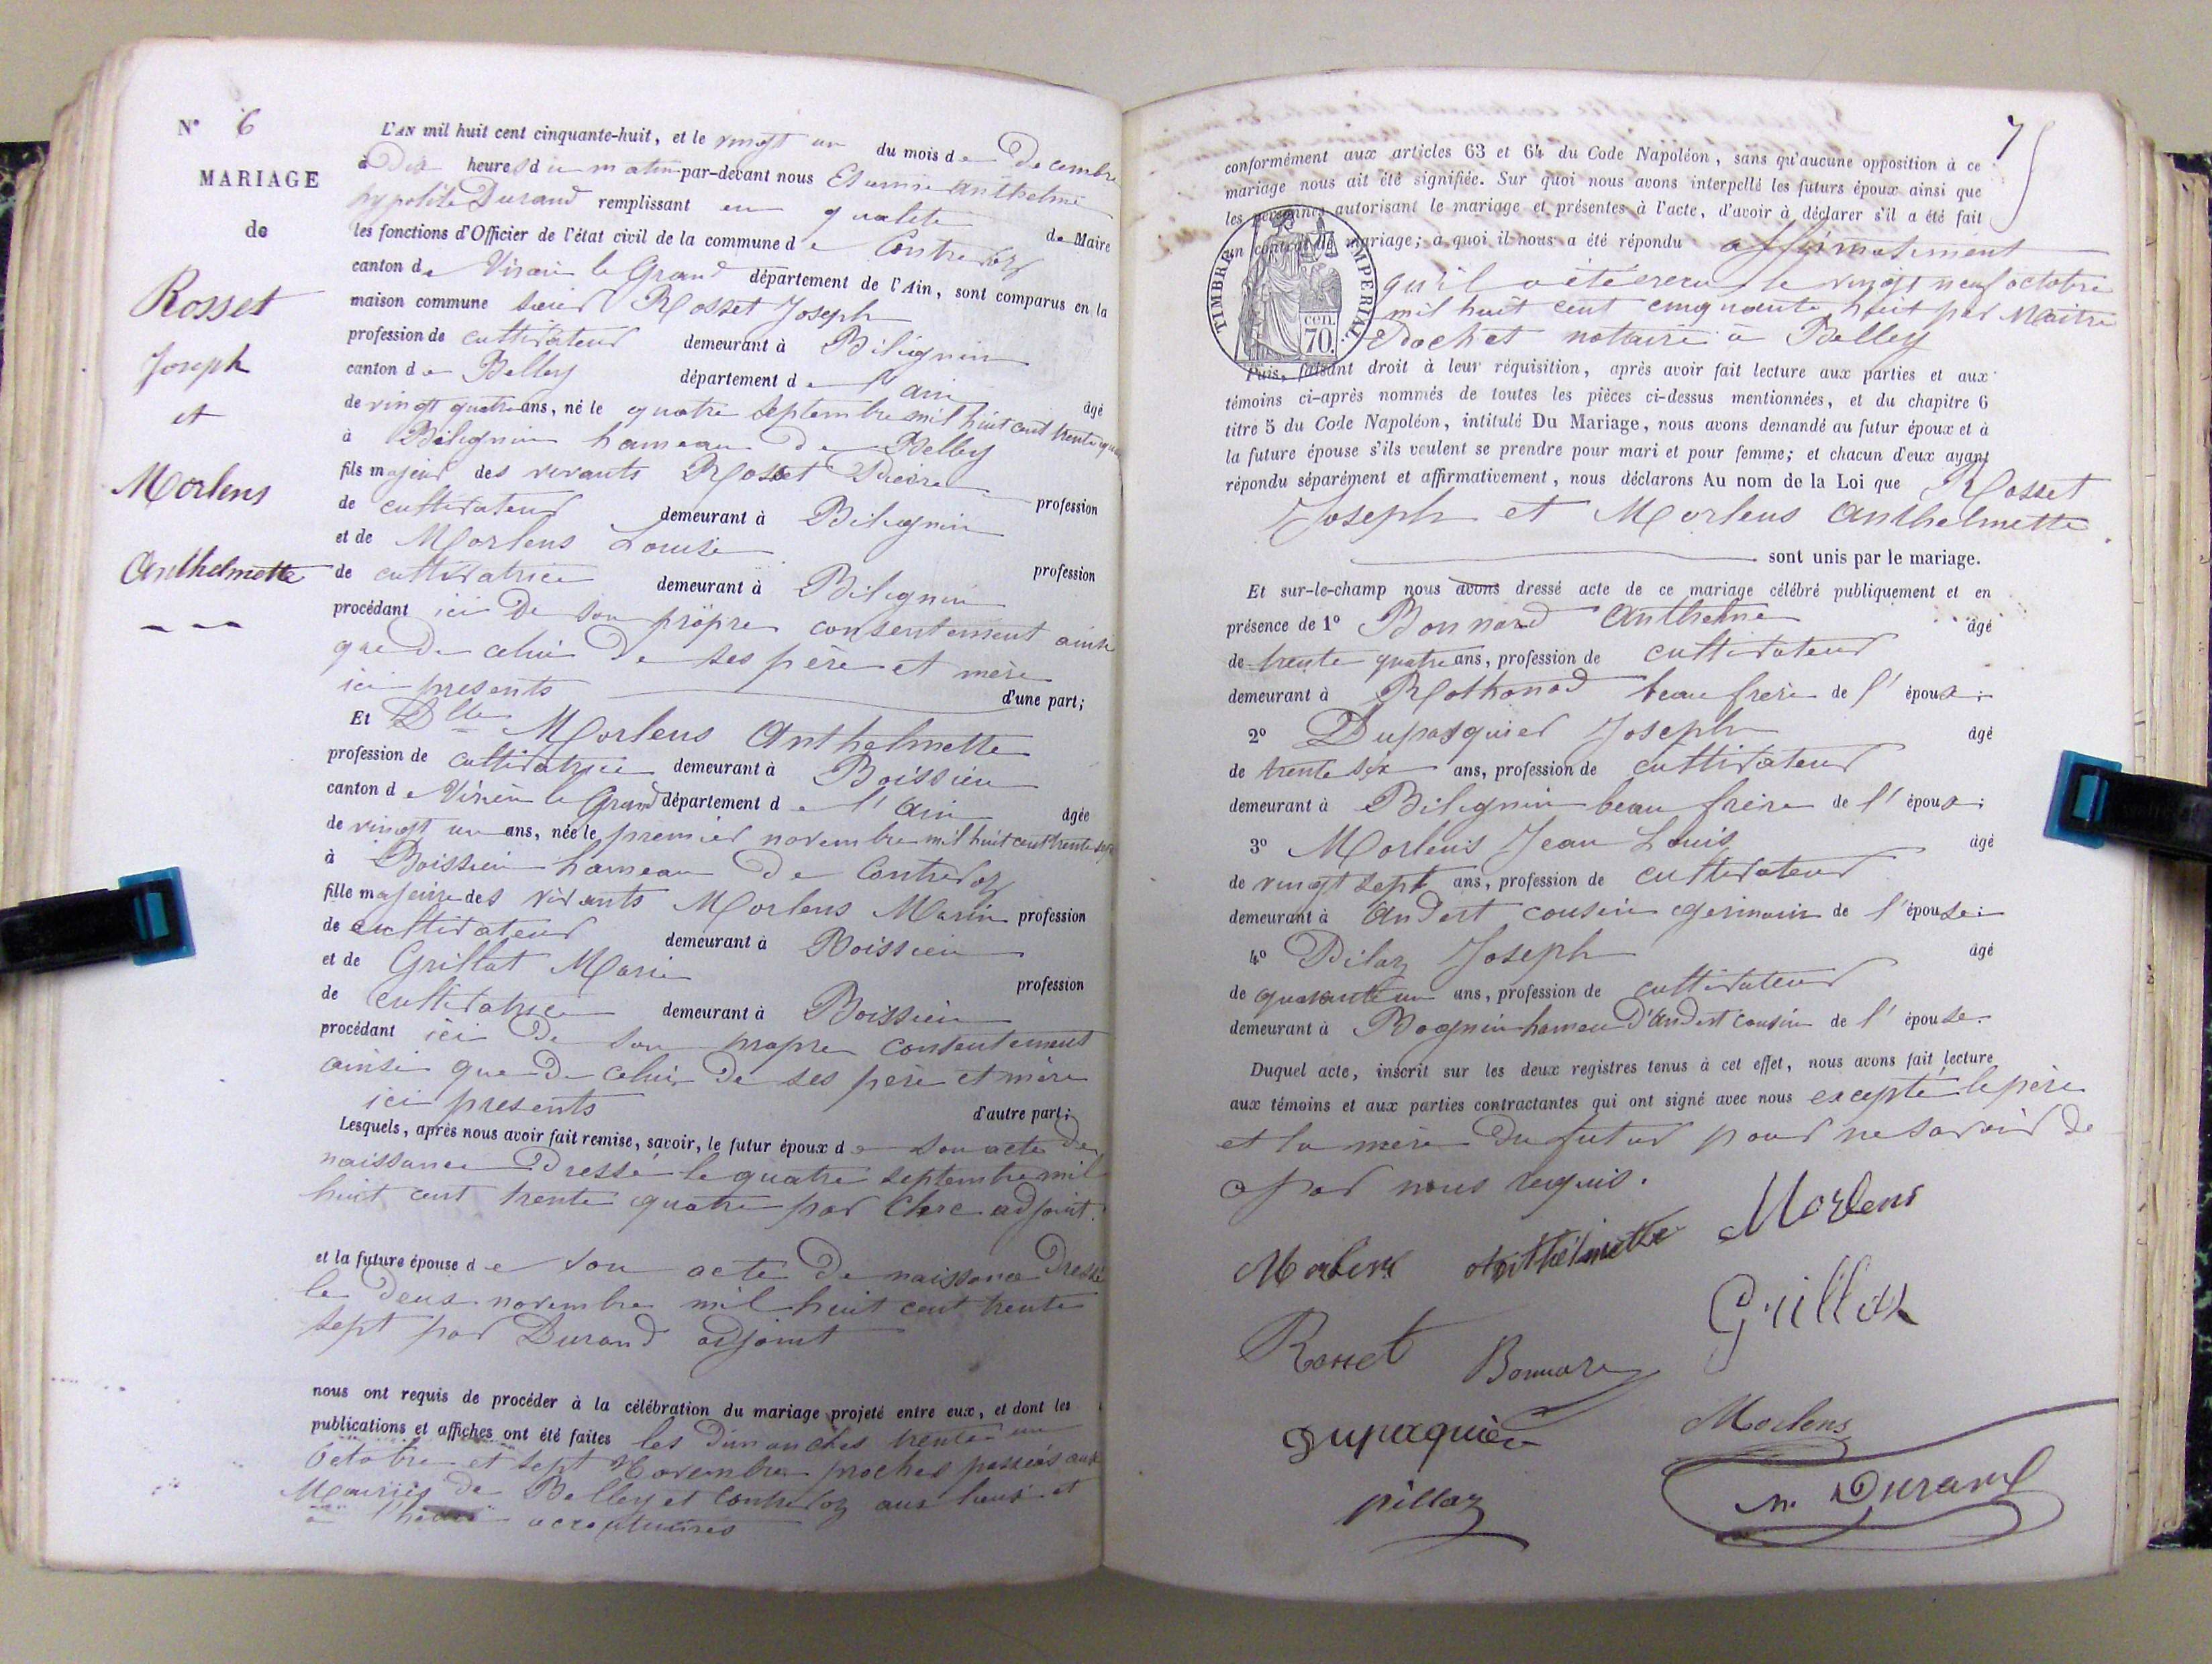 N° 6
MARIAGE
de
Rosset
Joseph
et
Morlens
Anthelmette
L'AN mil huit cent cinquante-huit, et le vingt un du mois de Decembre
à Dix heures du matin par-devant nous Etienne Anthelme
hypolite Durand remplissant en qualité de Maire
les fonctions d'Officier de l'état civil de la commune de Contrevoz
canton de Virieu le Grand département de l'Ain, sont comparus en la
maison commune sieur Rosset Joseph
profession de cultivateur demeurant à Bilignin
canton de Belley département de l'ain âgé
de vingt quatre ans, né le quatre septembre mil huit cent trente quatre
à Bilignin hameau de Belley
fils majeur des vivants Rosset Pierre profession
de cultivateur demeurant à Bilignin
et de Morlens Louise profession
de cultivatrice demeurant à Bilignin
procédant ici de son propre consentement ainsi
que de celui de ses père et mère
ici presents d'une part;
Et Dlle Morlens Anthelmette
profession de cultivatrice demeurant à Boissieu
canton de Virieu le Grand département de l'ain âgée
de vingt un ans, née le premier novembre mil huit cent trente sept
à Boissieu hameau de Contrevoz
fille majeure des vivants Morlens Marin profession
de cultivateur demeurant à Boissieu
et de Grillat Marie profession
de cultivatrice demeurant à Boissieu
procédant ici de son propre consentement
ainsi que de celui de ses père et mère
ici presents d'autre part;
Lesquels, après nous avoir fait remise, savoir, le futur époux de son acte de
naissance Dressé le quatre septembre mil
huit cent trente quatre par Clerc adjoint.
et la future épouse de son acte de naissance Dressé
le deux novembre mil huit cent trente
sept par Durand adjoint
nous ont requis de procéder à la célébration du mariage projeté entre eux, et dont les
publications et affiches ont été faites les dimanches trente un
Octobre et sept Novembre proches passés aux
Mairies de Belley et Contrevoz aux lieux et
à l'heure accoutumés
7
conformément aux articles 63 et 64 du Code Napoléon, sans qu'aucune opposition à ce
mariage nous ait été signifiée. Sur quoi nous avons interpellé les futurs époux ainsi que
les personnes autorisant le mariage et présentes à l'acte, d'avoir à déclarer s'il a été fait
un contrat de mariage; à quoi il nous a été répondu affirmativement
qu'il a été recu le vingt neuf octobre
mil huit cent cinquante huit par Maitre
Rochet notaire à Belley
TIMBRE IMPERIAL
70 cen.
Puis, faisant droit à leur réquisition, après avoir fait lecture aux parties et aux
témoins ci-après nommés de toutes les pièces ci-dessus mentionnées, et du chapitre 6
titre 5 du Code Napoléon, intitulé Du Mariage, nous avons demandé au futur époux et à
la future épouse s'ils veulent se prendre pour mari et pour femme; et chacun d'eux ayant
répondu séparément et affirmativement, nous déclarons Au nom de la Loi que Rosset
Joseph et Morlens Anthelmette
sont unis par le mariage.
Et sur-le-champ nous avons dressé acte de ce mariage célébré publiquement et en
présence de 1° Bonnard Anthelme âgé
de trente quatre ans, profession de cultivateur
demeurant à Rothonod beau frère de l'époux;
2° Dupasquier Joseph âgé
de trente six ans, profession de cultivateur
demeurant à Bilignin beau frère de l'époux;
3° Morlens Jean Louis âgé
de vingt sept ans, profession de cultivateur
demeurant à Andert cousin germain de l'épouse;
4° Pilaz Joseph âgé
de quarante un ans, profession de cultivateur
demeurant à Bognin hameau d'Andert cousin de l'épouse.
Duquel acte, inscrit sur les deux registres tenus à cet effet, nous avons fait lecture
aux témoins et aux parties contractantes qui ont signé avec nous excepté le père
et la mère du futur pour ne savoir de
ce par nous requis.
Morlens Anthelmette Morlens
Grillat
Rosset Bonnard
Dupaquier Morlens
pillaz
Durand